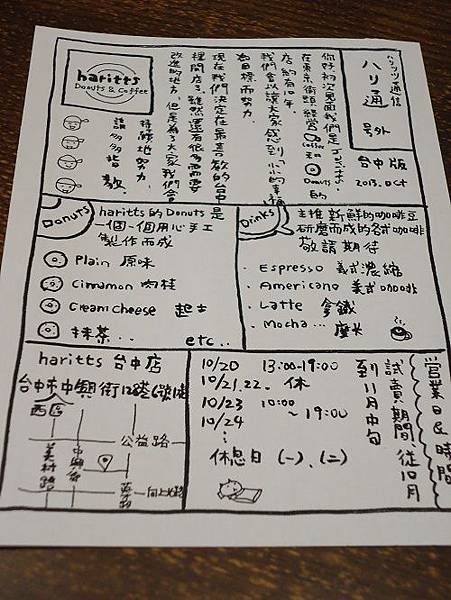 ハリッツ通信
ハリ通
号外
台中版
2013. Oct
你好,初次見面我們是
在東京街頭經營Coffee和Donuts的
店約有10年
我們會以讓大家感到小小的幸福
為目標而努力.
現在我們決定在最喜歡的台中
裡開店了.雖然還有很多需要
改進的地方,但是為了大家我們會
持續地努力.
請多多指教.
haritts
Donuts & Coffee
Donuts
haritts的Donuts是
一個一個用心手工
製作而成
Plain 原味
Cinnamon 肉桂
Cream cheese 起士
抹茶..
etc..
Drinks
主推新鮮的咖啡豆
研磨而成的各式咖啡
敬請期待
・Espresso 義式濃縮
・Americano 美式咖啡
・Latte 拿鐵
・Mocha... 摩卡
haritts 台中店
台中市中興街
西區
公益路
美村路
中興街
向上北路
營業日&時間
試賣期間,從10月
到11月中旬
10/20 13:00-19:00
10/21.22. 休
10/23 10:00
10/24 ~19:00
休息日 (一)、(二)